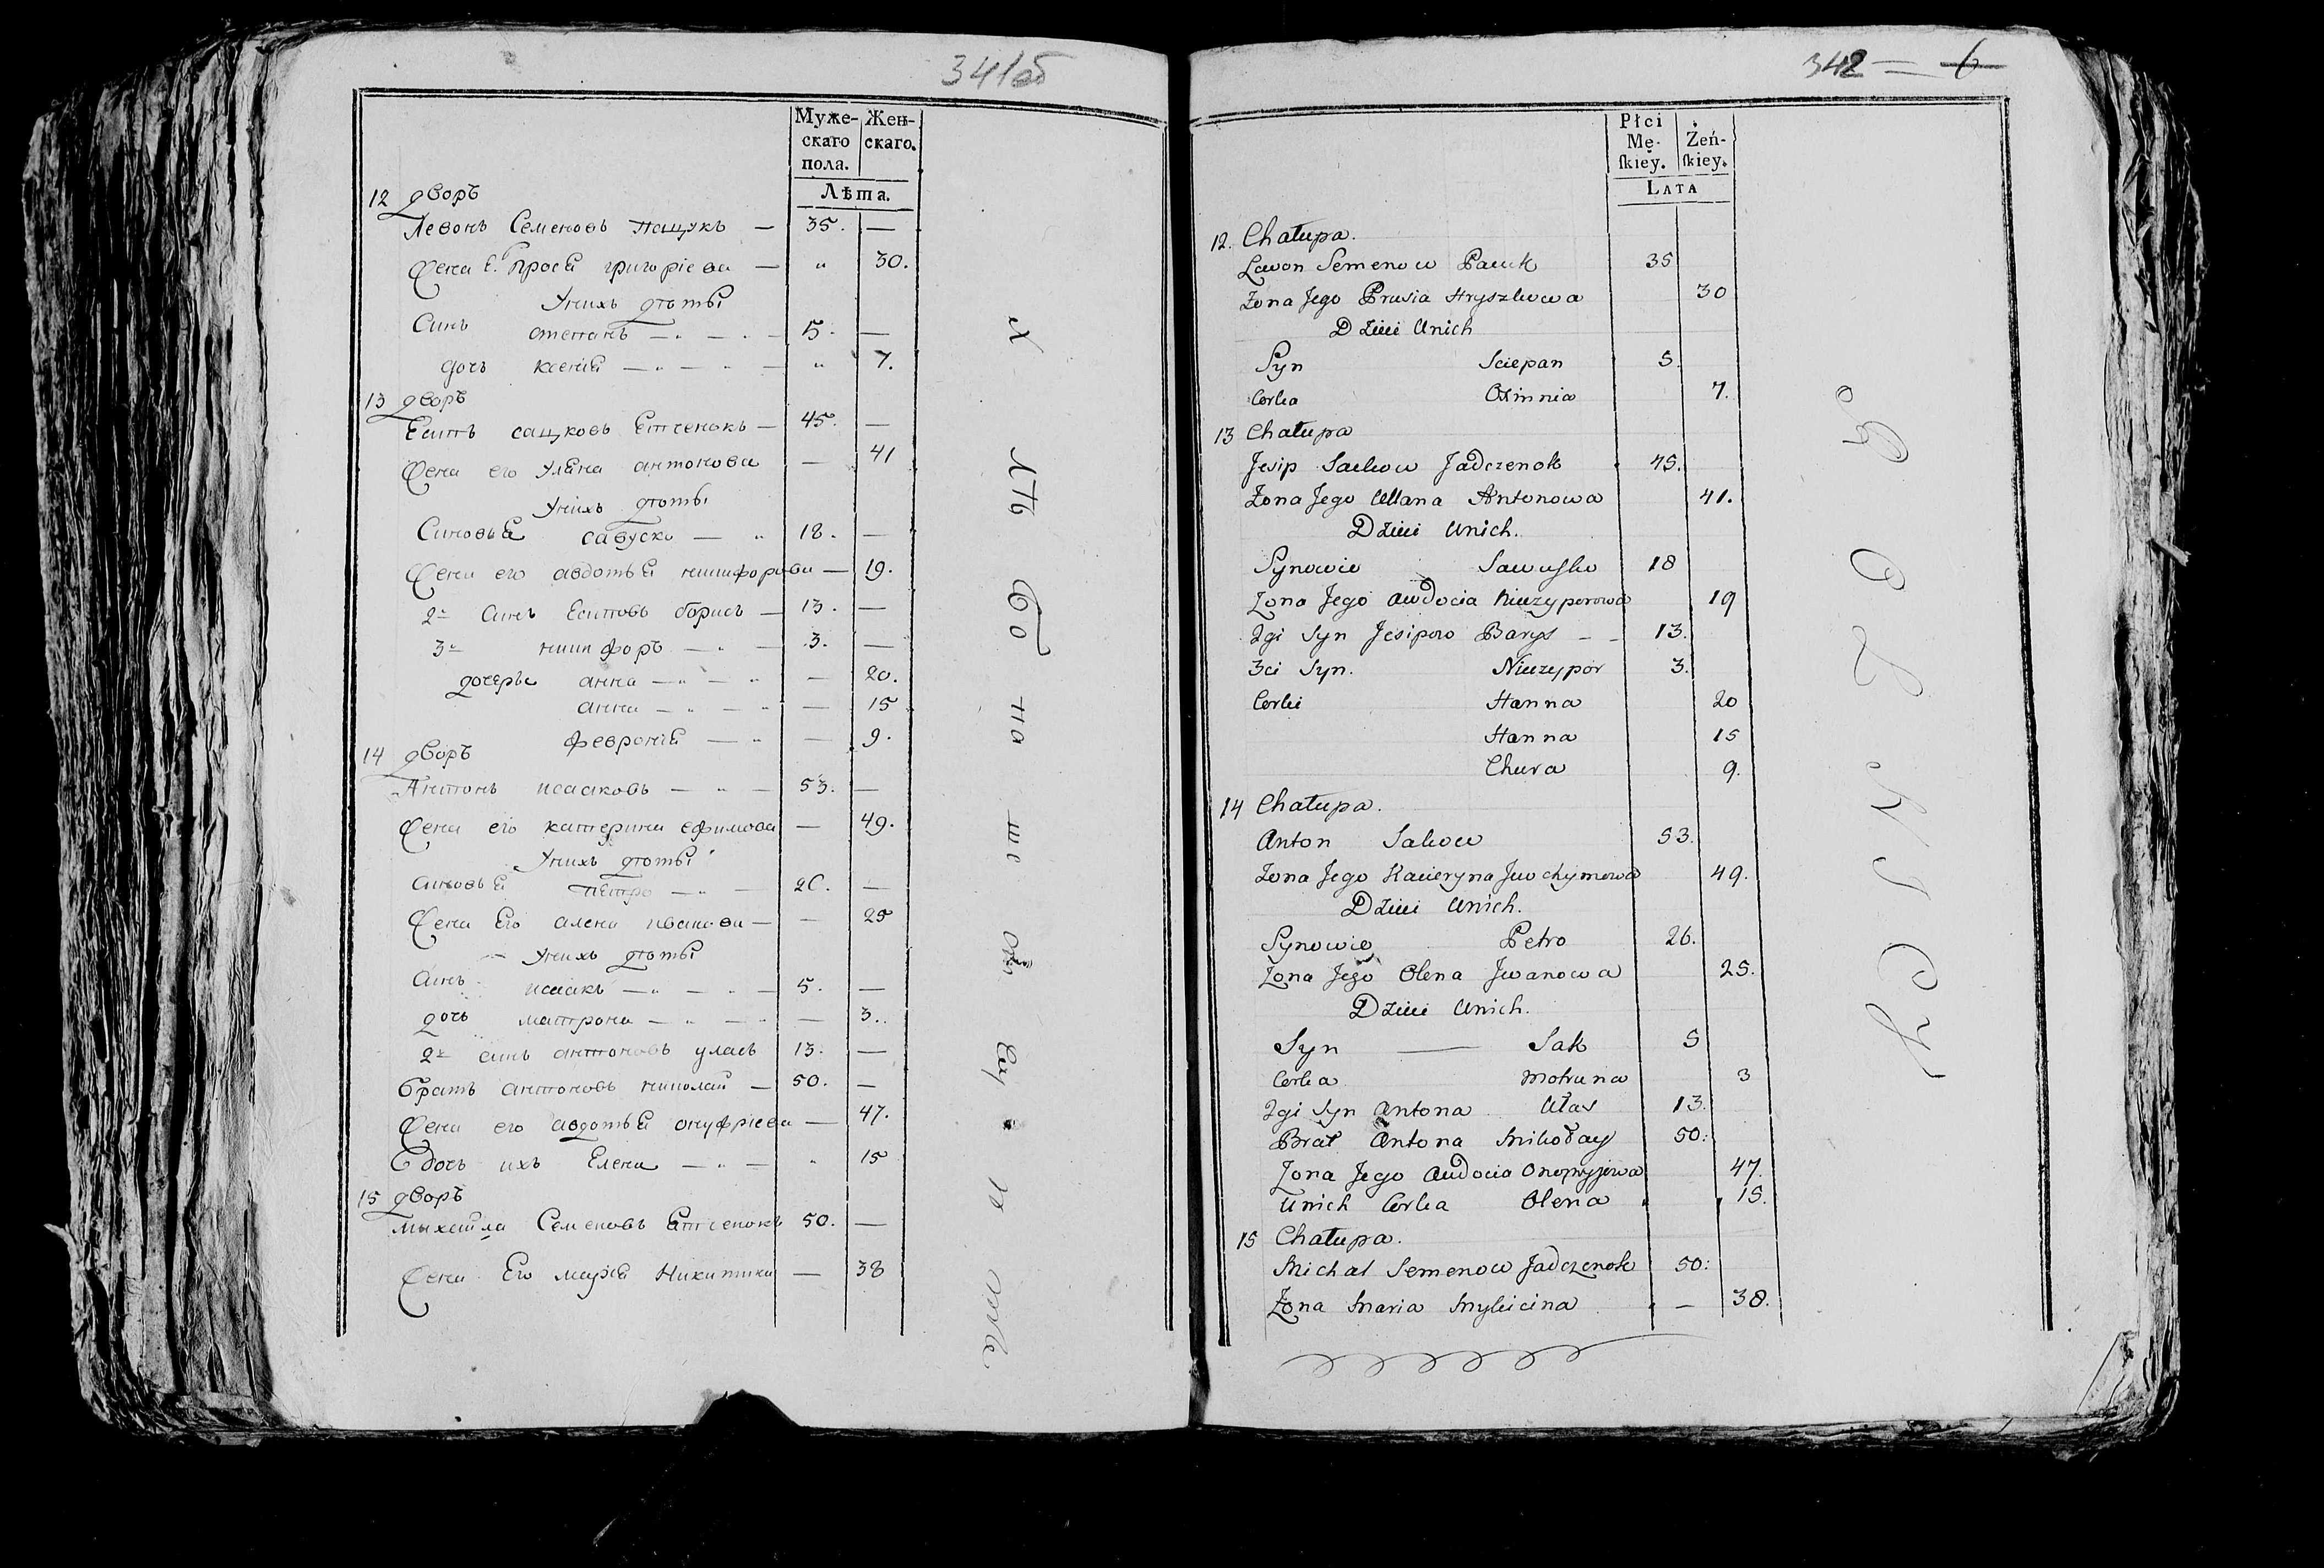 341об
Муже- Жен-
скаго скаго.
пола.
Лѣта.
12 дворъ
Левонъ Семеновъ Пацукъ — 35. —
Жена Е. Прося григоріева — „ 30.
Унихъ дѣты
Синъ степанъ — 5. —
дочь ксенія — „ 7.
13 дворъ
Есипъ сацковъ Етченокъ — 45. —
Жена его Уляна антонова — 41
Унихъ дѣты
Синовья савуско — 18. —
Жена его авдотья ничифорова — 19.
2й синъ Есиповъ борисъ — 13. —
3й ничифоръ — 3. —
дочерѣ анна — — 20.
анна — — 15
февронія — — 9.
14 дворъ
Антонъ исааковъ — 53. —
Жена его катерина ефимова — 49.
Унихъ дѣты
синовья петро — 26. —
Жена Его алена иванова — — 25
Унихъ дѣты
Синъ исаакъ — 5. —
дочь матрона — — 3.
2й синъ антоновъ уласъ 13. —
братъ антоновъ николай — 50. —
Жена его авдотья онуфріева — 47.
дочь ихъ Елена — „ 15
15 дворъ
михайла Семеновъ Етченокъ 50. —
Жена Его марья Никитина — 38
342 = 6
Płci Żeń-
Mę- skiey.
skiey.
LATA
12. Chałupa.
Lawon Semenow Pacuk 35
Żona Jego Prusia Hryszkowa 30
Dzieci Unich
Syn Sciepan 5.
Corka Oximnia 7.
13 Chałupa
Jesip Sackow Jadczenok 45.
Żona Jego Ullana Antonowa 41.
Dzieci Unich.
Synowie Sawusko 18
Żona Jego Awdocia Niczyporowa 19
2gi Syn Jesipow Barys — 13.
3ci Syn. Niczypor 3.
Corki Hanna 20
Hanna 15
Chura 9.
14 Chałupa.
Anton Sakow 53.
Żona Jego Kacieryna Juchymowa 49.
Dzieci Unich.
Synowie Petro 26.
Żona Jego Olena Jwanowa 25.
Dzieci Unich.
Syn — Sak 5
Corka Motruna 3
2gi Syn Antona Ułas 13.
Brat Antona Mikołay 50:
Żona Jego Awdocia Onopryjowa 47.
Unich Corka Olena 15.
15 Chałupa.
Michał Semenow Jadczenok 50:
Żona Maria Mykicina — 38.